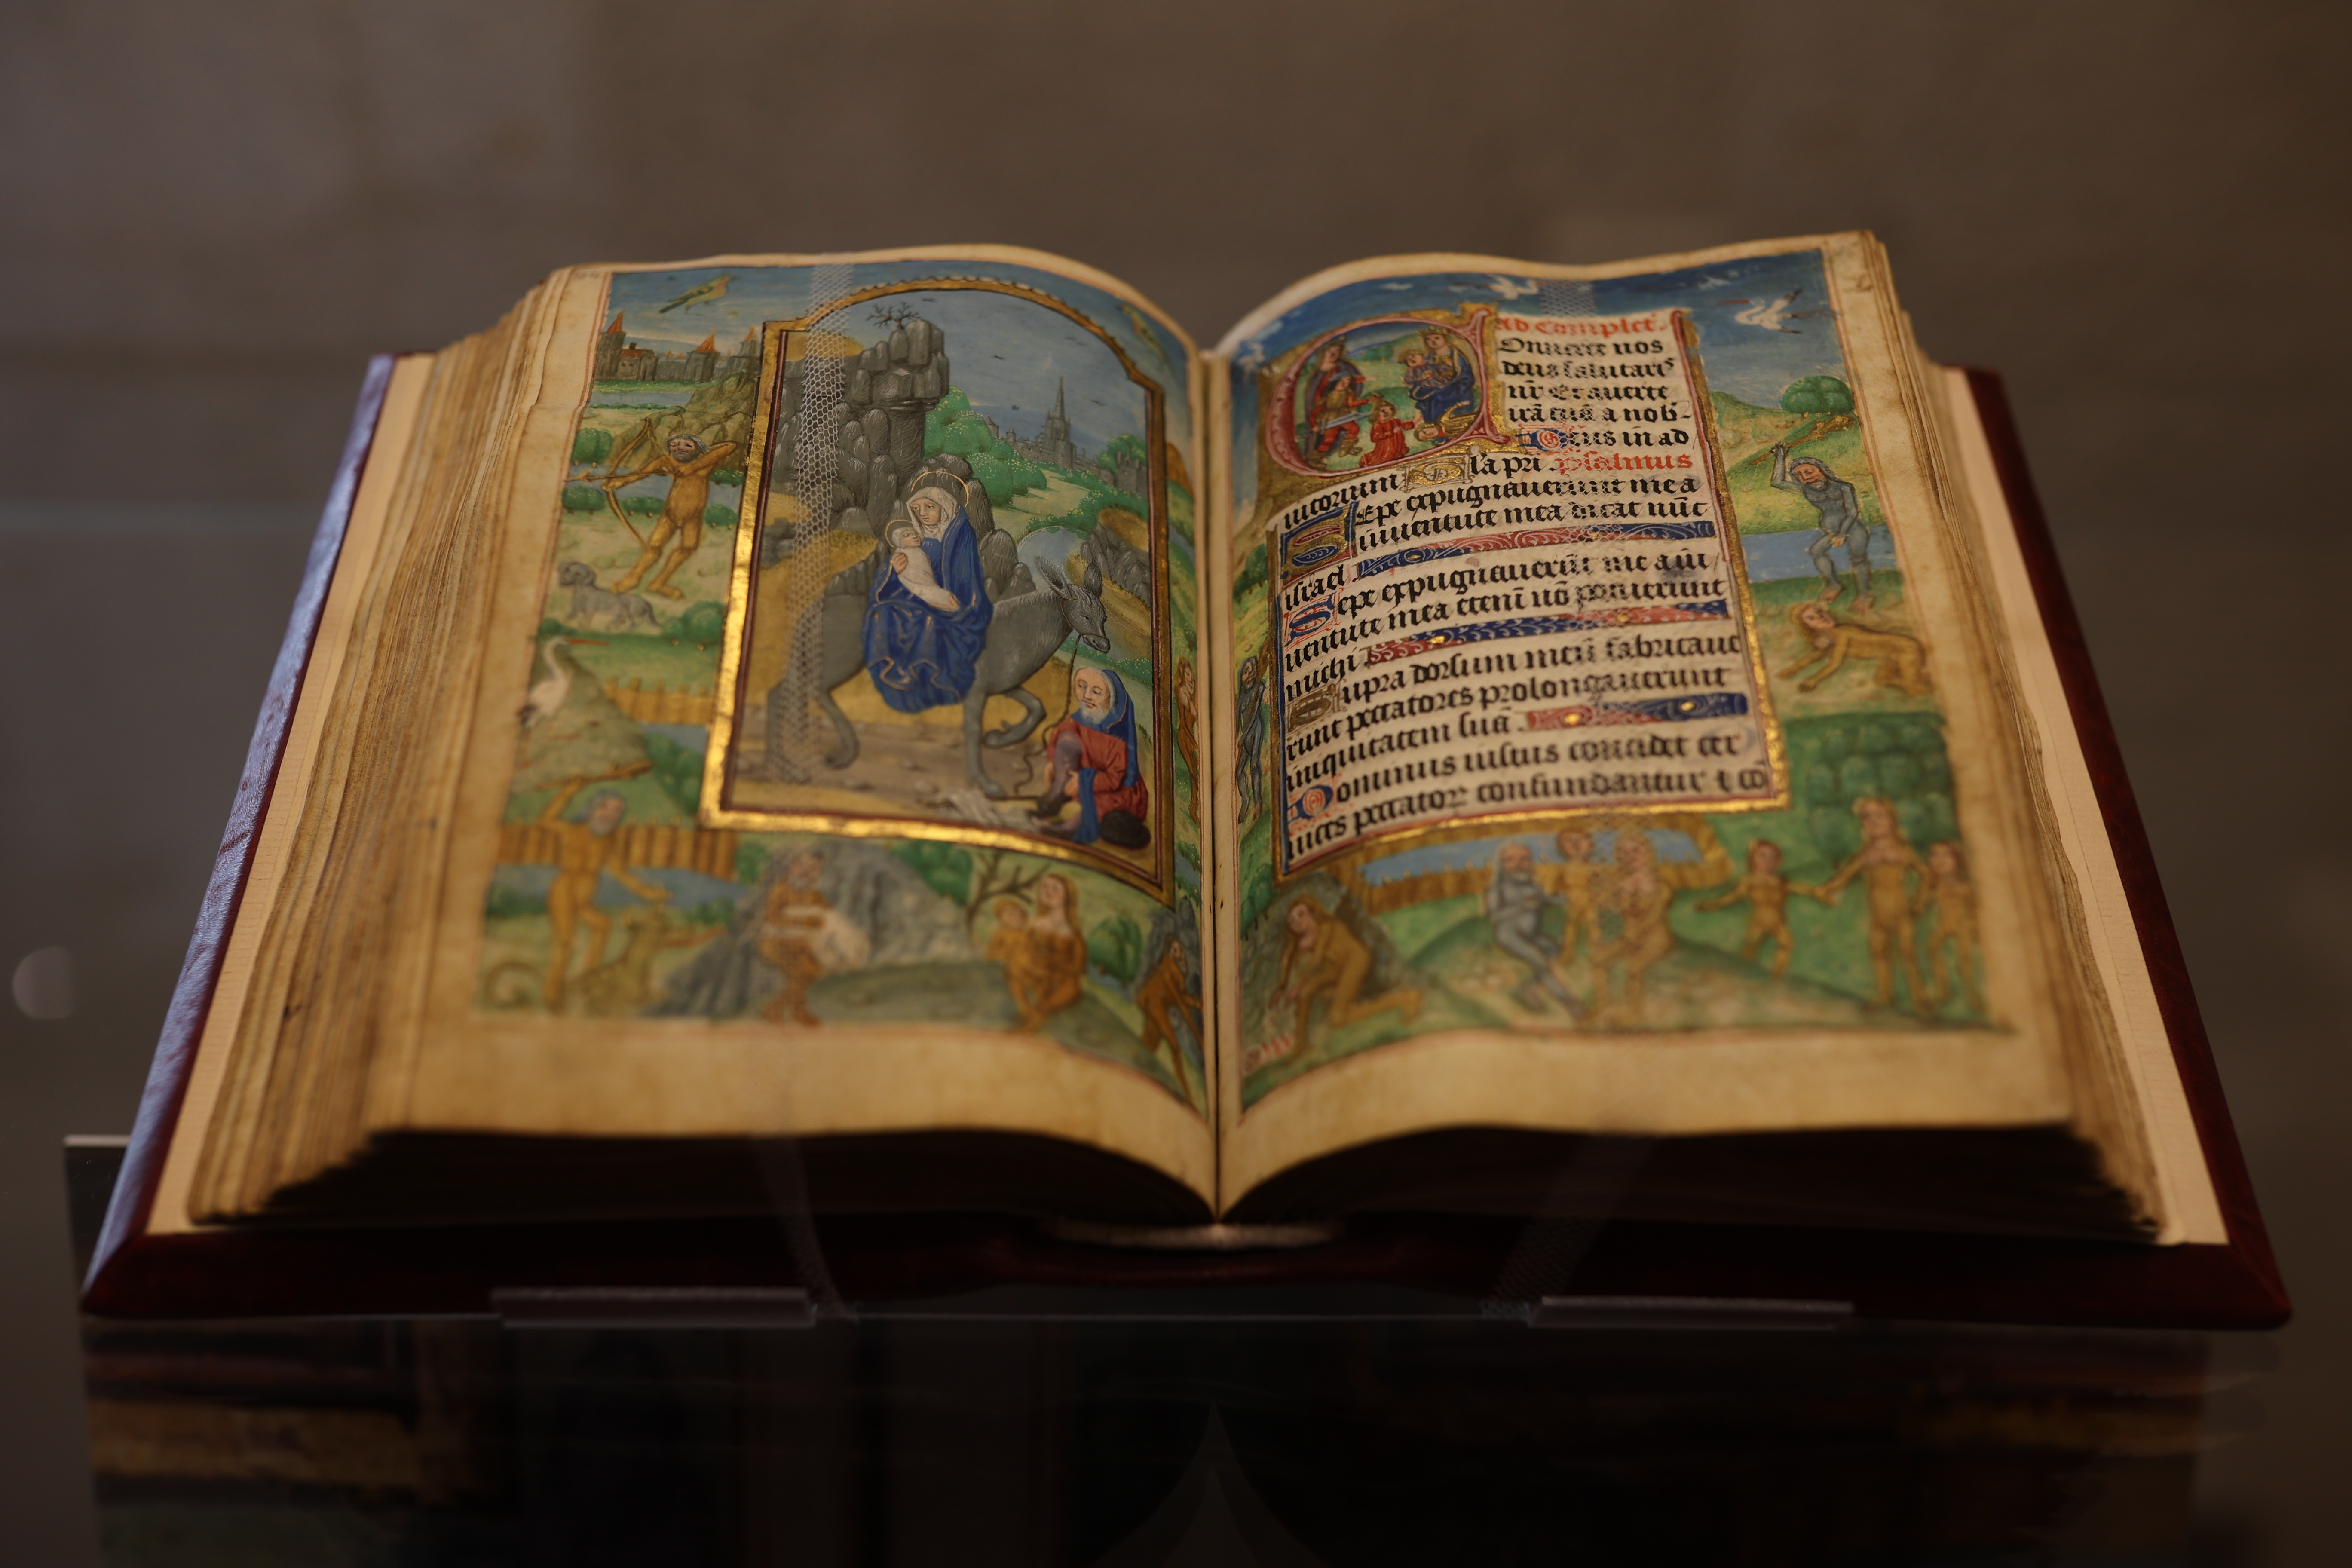 ad complet.
Onuerte nos
deus salutaris
nr̄ Et auerte
irā tuā a nob-
Deus in ad
iutorium
Gl̄a pri. psalmus
Sepe expugnauerunt me a
iuuentute mea dicat nūc
israel
Sepe expugnauerūt me a iu
uentute mea etenī nō potuerunt
michi
Supra dorsum meū fabricaue
runt peccatores prolongauerunt
iniquitatem suā.
Dominus iustus concidet cer
uices peccator confundantur ⁊ cō